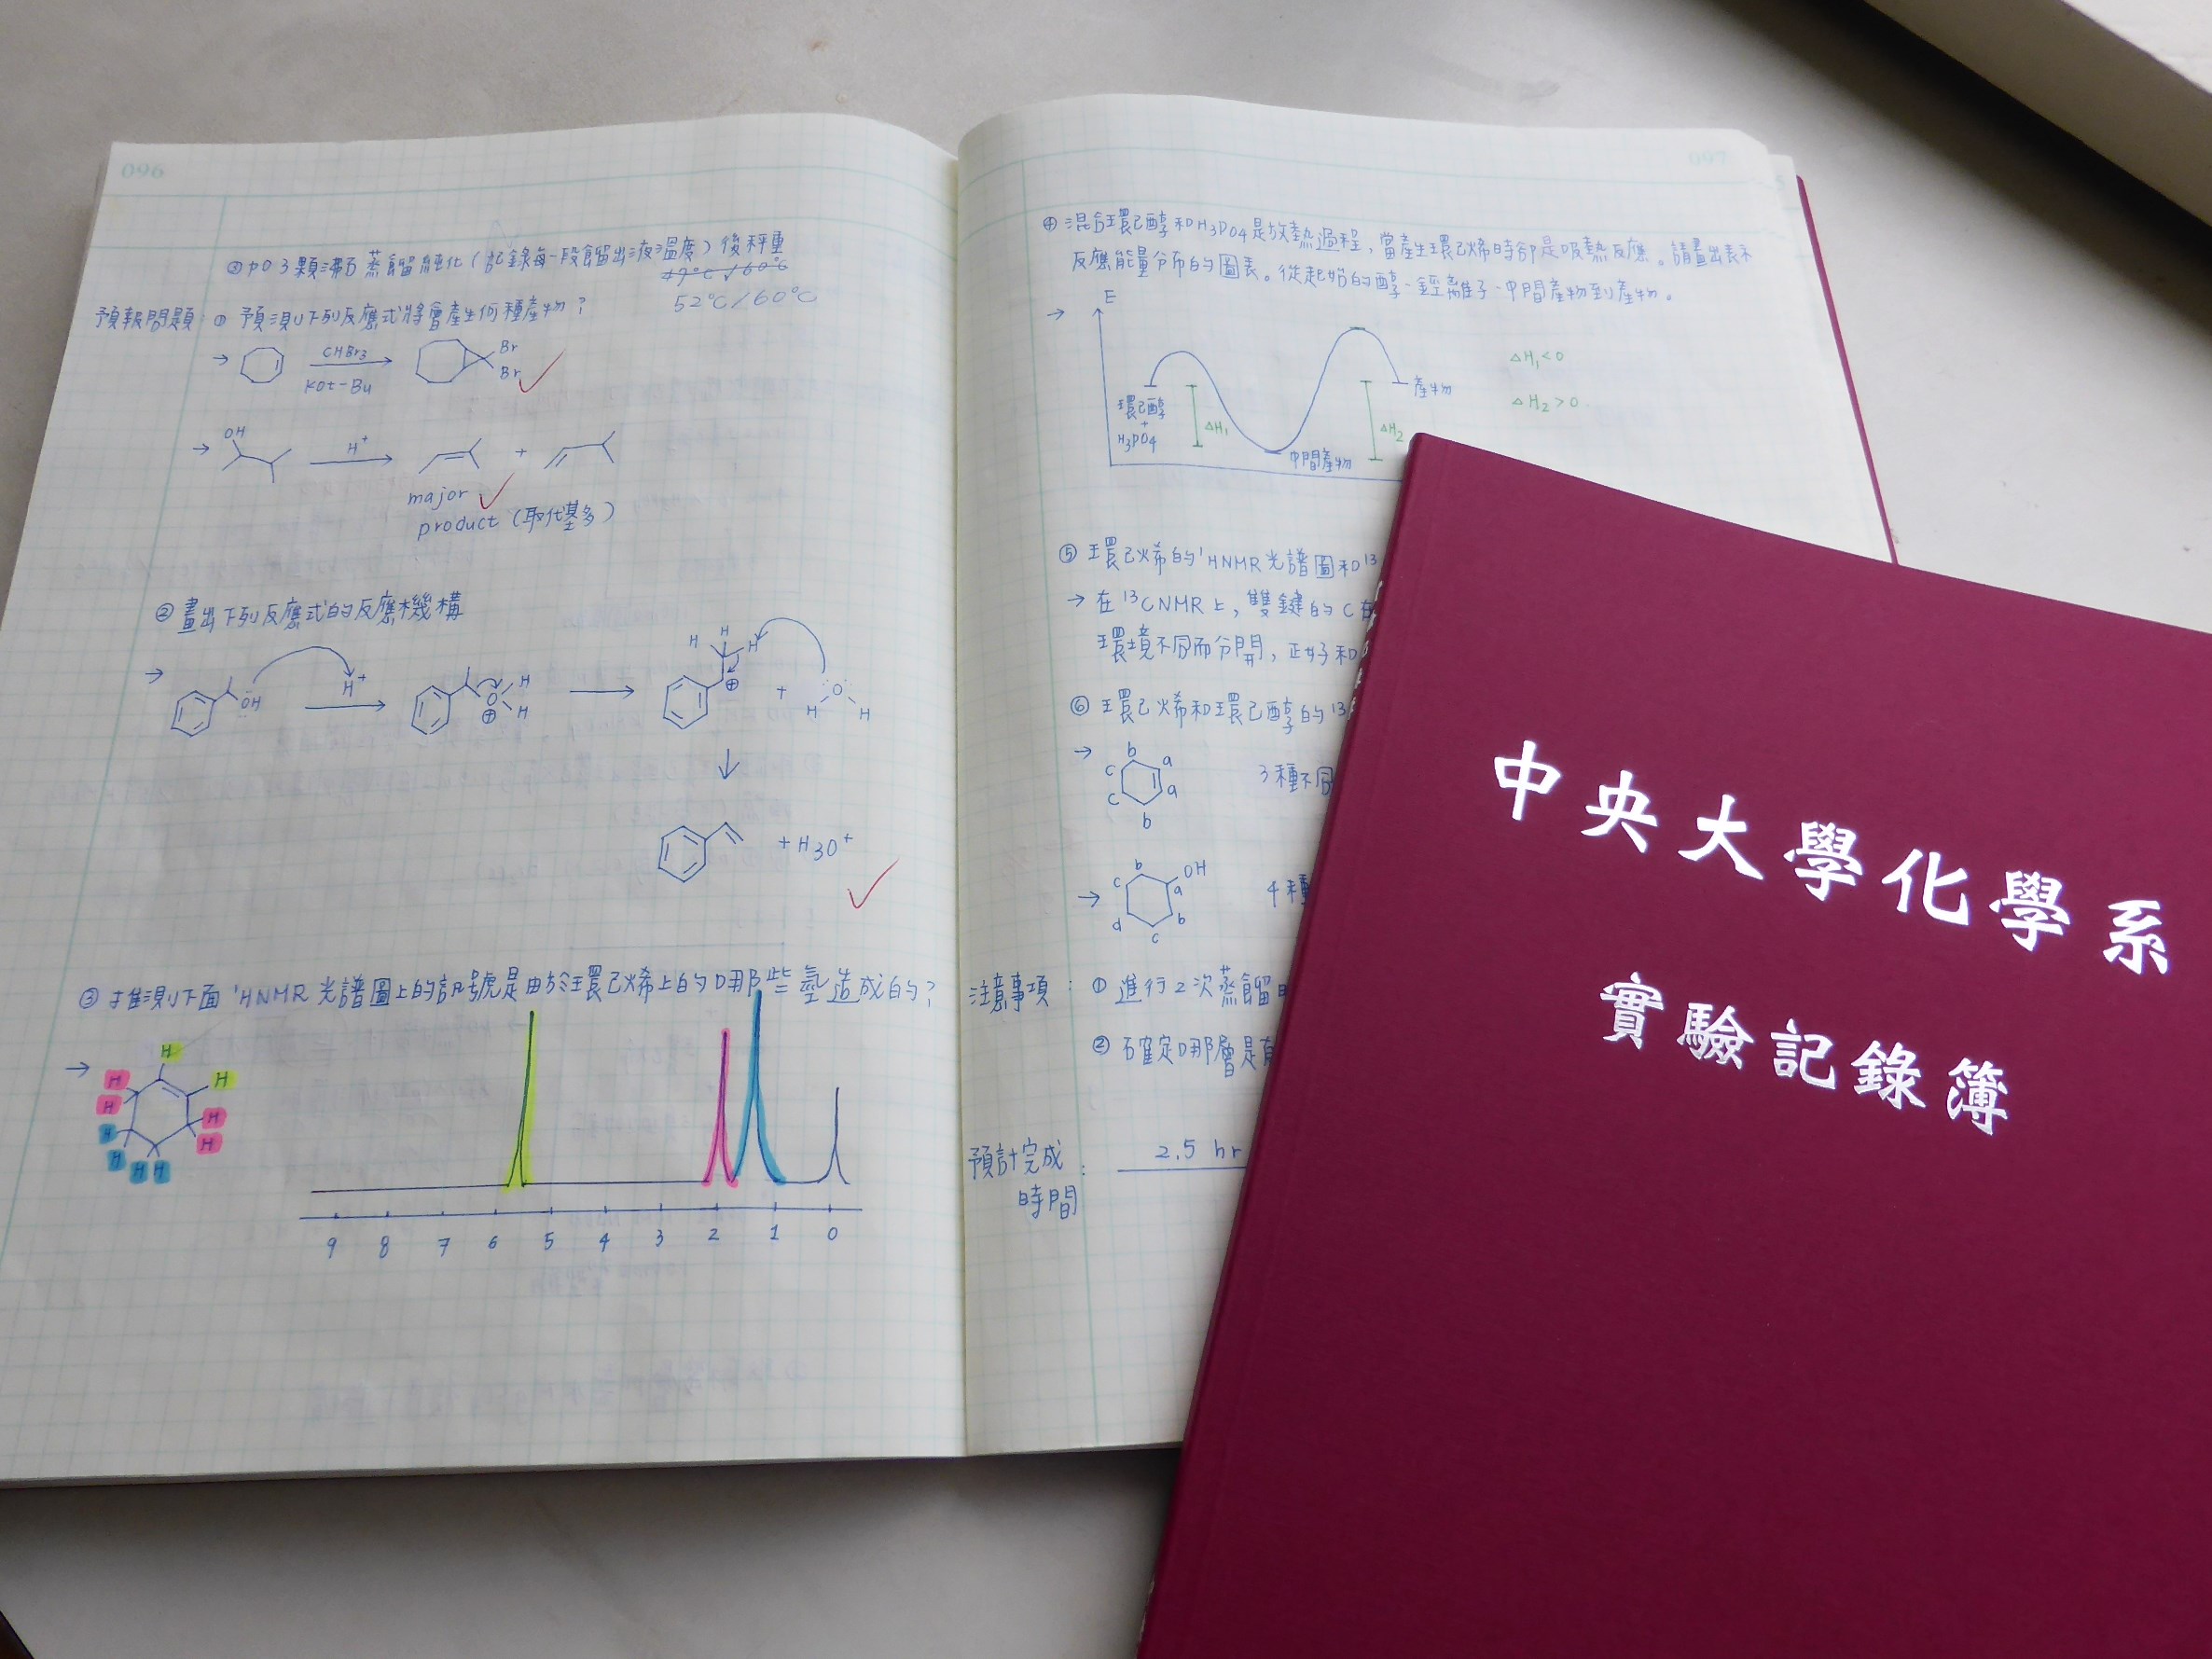 096
③加3顆沸石蒸餾純化(記錄每一段餾出液溫度)後秤重
47°C/60°C
52°C/60°C
預報問題:① 預測下列反應式將會產生何種產物?
→ CHBr3
KOt-Bu
Br
Br
→ OH
H+
+
major
product (取代基多)
② 畫出下列反應式的反應機構
→ ÖH H+ O H H ⊕ H H H ⊕ + H O H
↓
+ H3O+
③ 推測下面 ¹HNMR 光譜圖上的訊號是由於環己烯上的哪些氫造成的?
→ H H H H H H H H H H
9 8 7 6 5 4 3 2 1 0
097
④ 混合環己醇和H3PO4是放熱過程,當產生環己烯時卻是吸熱反應。請畫出表示
反應能量分布的圖表。從起始的醇-經離子-中間產物到產物。
→ E
環己醇
+
H3PO4
△H1
中間產物
△H2
產物
△H1<0
△H2>0
⑤ 環己烯的¹HNMR光譜圖和13
→ 在 13CNMR上,雙鍵的C在
環境不同而分開,正好和
⑥ 環己烯和環己醇的13
→ b a a b c c 3種不同
→ b OH a b c d c 4種
注意事項:① 進行2次蒸餾
② 確定哪層是有
預計完成
時間
: 2.5 hr
中央大學化學系
實驗記錄簿